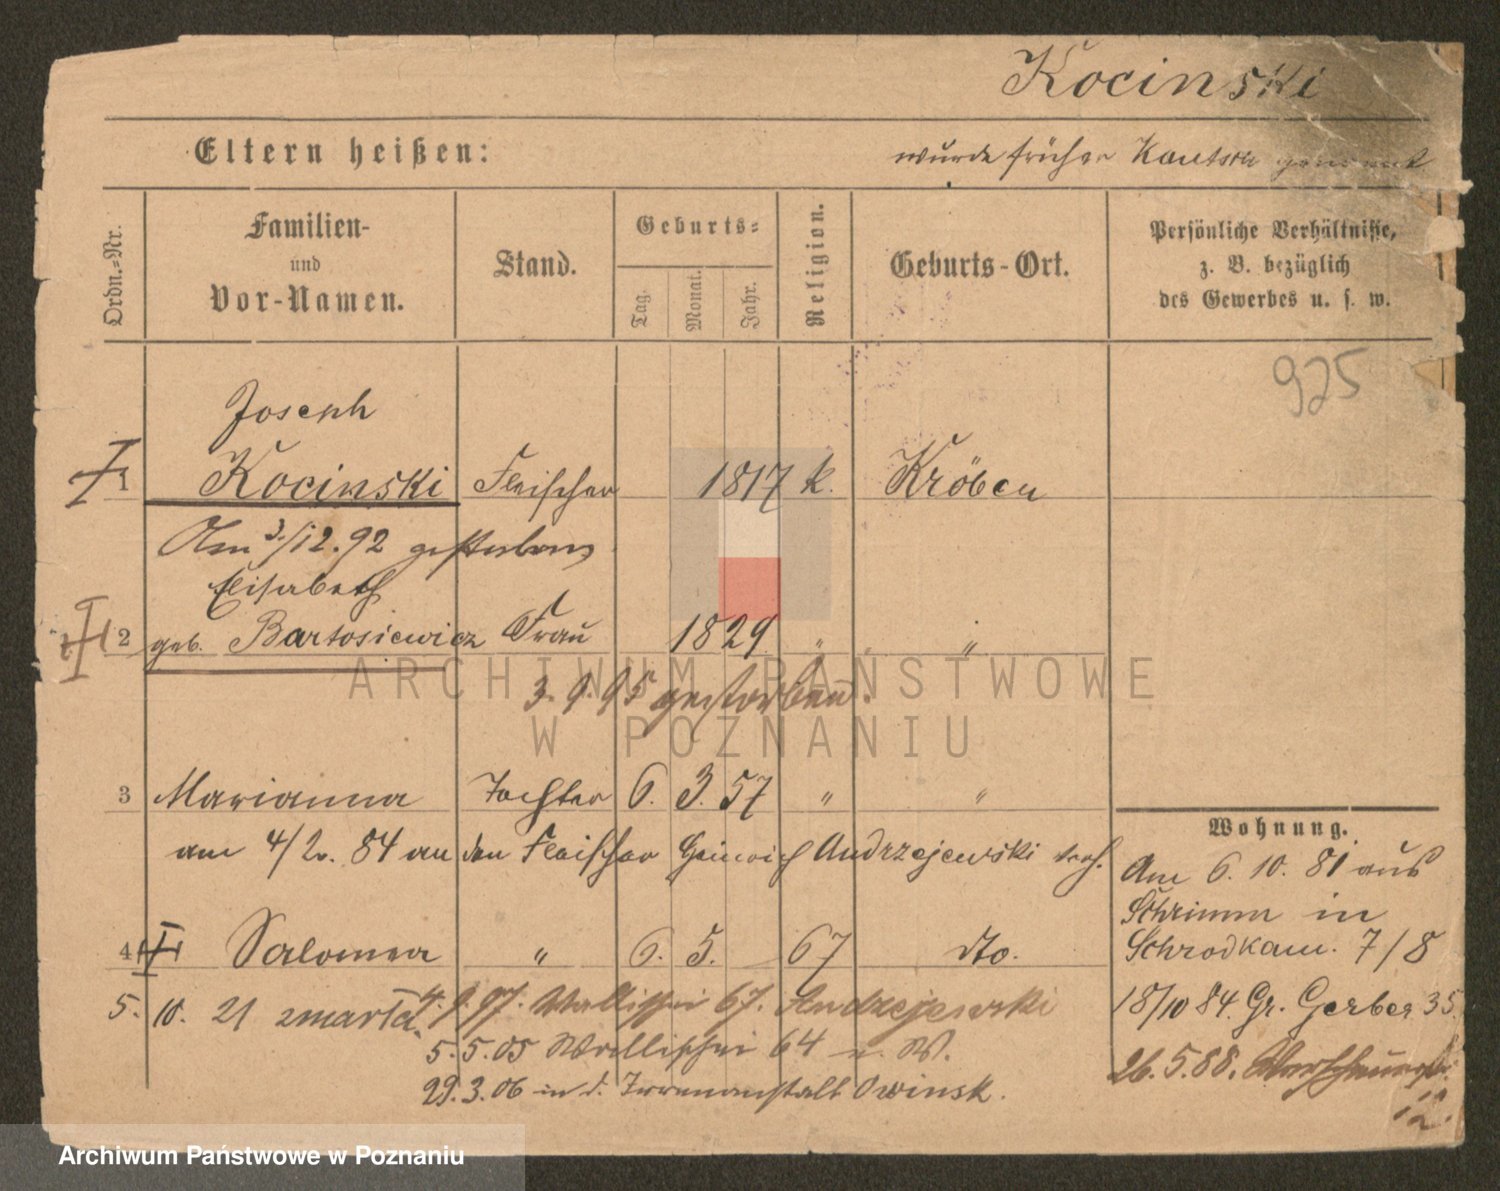 Kocinski
Eltern heißen:
wurde früher Kautsch genannt
Ordn.=Nr.
Familien-
und
Vor-Namen.
Stand.
Geburts=
Tag.
Monat.
Jahr.
Religion.
Geburts-Ort.
Persönliche Verhältnisse,
z. B. bezüglich
des Gewerbes u. s. w.
925
Joseph
1 Kocinski Fleischer 1817 k. Kröben
Am 3/12.92 gestorben
Elisabeth
2 geb. Bartosiewicz Frau 1829 " "
3.9.95 gestorben.
3 Marianna Tochter 6. 3. 57 " "
am 4/2. 84 an den Fleischer Heinrich Andrzejewski verh.
4 Salomea " 6. 5. 67 dto.
5. 10. 21 zmarła
4.9.97. Wallischei 67. Andrzejewski
5.5.05 Wallischei 64 W.
29.3.06 in d. Irrenanstalt Owinsk.
Wohnung.
Am 6. 10. 81 aus
Schrimm in
Schrodkam. 7/8
18/10 84. Gr. Gerber 35.
26.5.88.
12.
ARCHIWUM PAŃSTWOWE
W POZNANIU
Archiwum Państwowe w Poznaniu